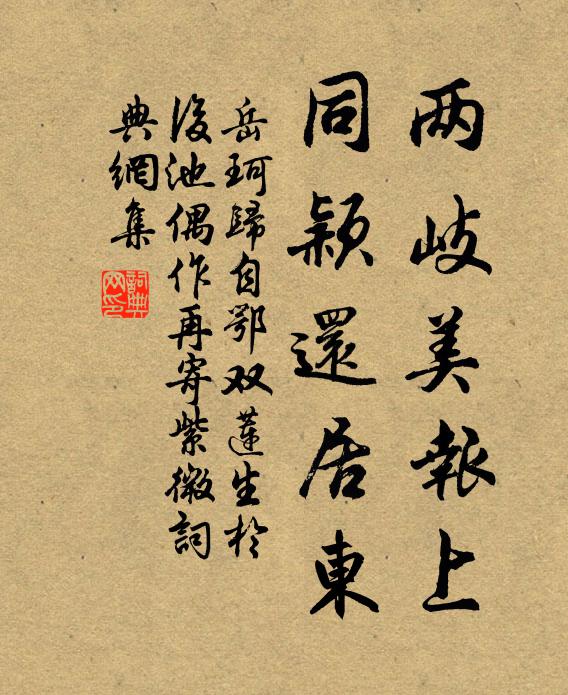 两岐美報上
同颖還居東
岳珂歸自鄂双蓮生於
後池偶作再寄紫微詞
典網集
詞典
网印